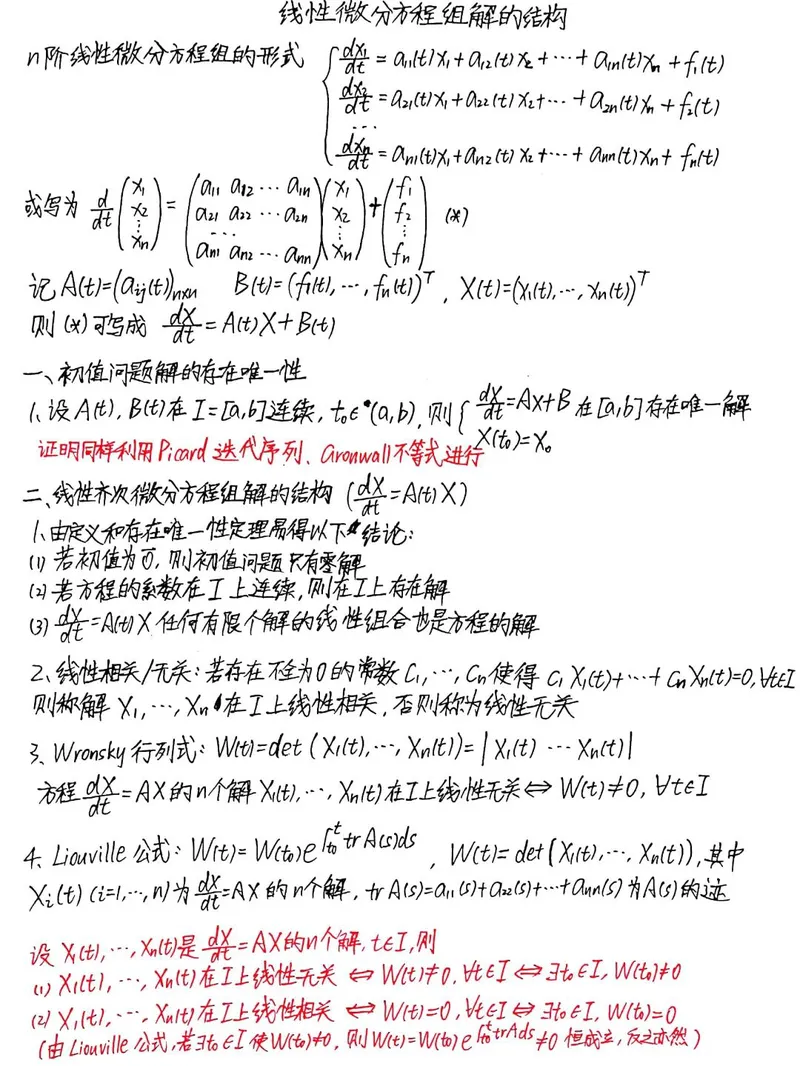 线性微分方程组解的结构
n阶线性微分方程组的形式 { dx₁/dt = a₁₁(t)x₁+a₁₂(t)x₂+⋯+a₁ₙ(t)xₙ+f₁(t)
dx₂/dt = a₂₁(t)x₁+a₂₂(t)x₂+⋯+a₂ₙ(t)xₙ+f₂(t)
⋯
dxₙ/dt = aₙ₁(t)x₁+aₙ₂(t)x₂+⋯+aₙₙ(t)xₙ+fₙ(t)
或写为 d/dt (x₁ x₂ ⋮ xₙ) = (a₁₁ a₁₂ ⋯ a₁ₙ; a₂₁ a₂₂ ⋯ a₂ₙ; ⋯; aₙ₁ aₙ₂ ⋯ aₙₙ)(x₁ x₂ ⋮ xₙ) + (f₁ f₂ ⋮ fₙ) (*)
记 A(t)=(aᵢⱼ(t))ₙₓₙ B(t)=(f₁(t),⋯,fₙ(t))ᵀ, X(t)=(x₁(t),⋯,xₙ(t))ᵀ
则(*)可写成 dX/dt=A(t)X+B(t)
一、初值问题解的存在唯一性
1、设A(t), B(t)在I=[a,b]连续, t₀∈(a,b), 则 { dX/dt=AX+B 在[a,b]存在唯一解
X(t₀)=X₀
证明同样利用Picard迭代序列、Gronwall不等式进行
二、线性齐次微分方程组解的结构 (dX/dt=A(t)X)
1、由定义和存在唯一性定理易得以下结论:
(1) 若初值为0, 则初值问题只有零解
(2) 若方程的系数在I上连续, 则在I上存在解
(3) dX/dt=A(t)X任何有限个解的线性组合也是方程的解
2、线性相关/无关: 若存在不全为0的常数C₁,⋯,Cₙ使得 C₁X₁(t)+⋯+CₙXₙ(t)=0, ∀t∈I
则称解X₁,⋯,Xₙ在I上线性相关, 否则称为线性无关
3、Wronsky行列式: W(t)=det(X₁(t),⋯,Xₙ(t))=|X₁(t) ⋯ Xₙ(t)|
方程dX/dt=AX的n个解X₁(t),⋯,Xₙ(t)在I上线性无关⇔W(t)≠0, ∀t∈I
4、Liouville公式: W(t)=W(t₀)e^{∫_{t₀}^{t} trA(s)ds}, W(t)=det(X₁(t),⋯,Xₙ(t)), 其中
Xᵢ(t) (i=1,⋯,n)为dX/dt=AX的n个解, trA(s)=a₁₁(s)+a₂₂(s)+⋯+aₙₙ(s)为A(s)的迹
设X₁(t),⋯,Xₙ(t)是dX/dt=AX的n个解, t∈I, 则
(1) X₁(t),⋯,Xₙ(t)在I上线性无关⇔W(t)≠0, ∀t∈I⇔∃t₀∈I, W(t₀)≠0
(2) X₁(t),⋯,Xₙ(t)在I上线性相关⇔W(t)=0, ∀t∈I⇔∃t₀∈I, W(t₀)=0
(由Liouville公式, 若∃t₀∈I使W(t₀)≠0, 则W(t)=W(t₀)e^{∫_{t₀}^{t} trAds}≠0恒成立, 反之亦然)